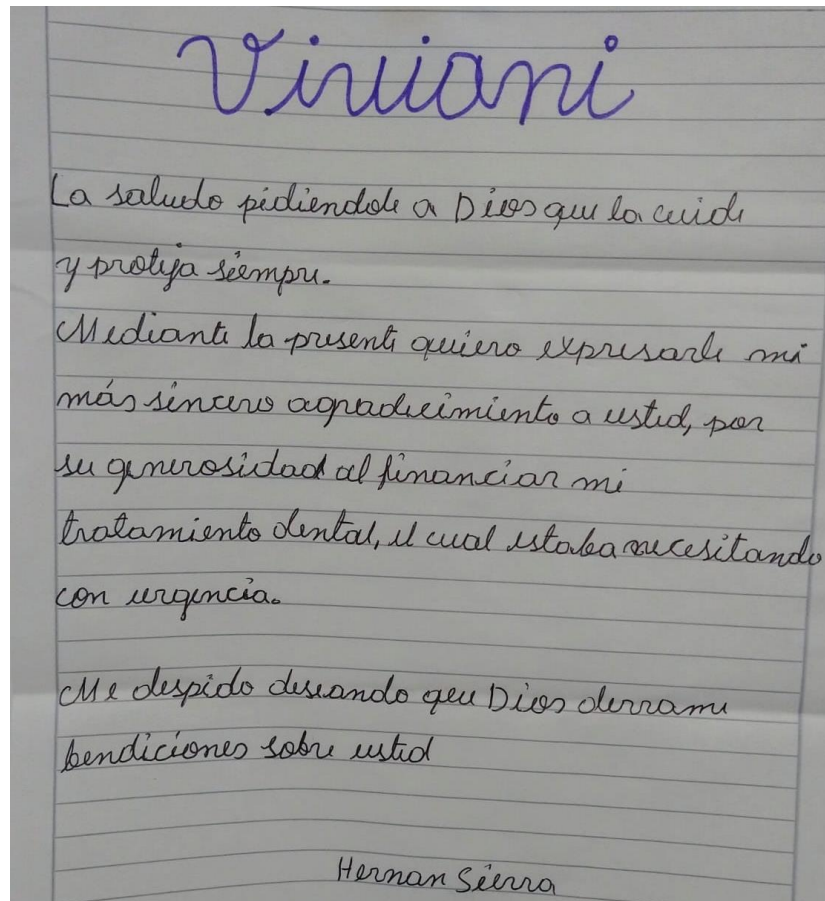 Viviani
La saludo pidiendole a Dios que la cuide
y proteja siempre.
Mediante la presente quiero expresarle mi
más sincero agradecimiento a usted, por
su generosidad al financiar mi
tratamiento dental, el cual estaba necesitando
con urgencia.
Me despido deseando qeu Dios derrame
bendiciones sobre usted
Hernan Sierra